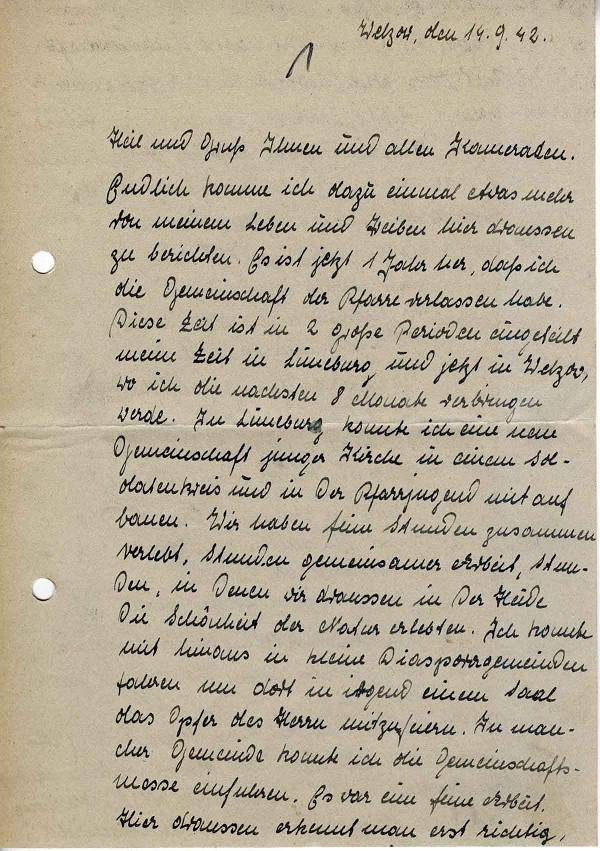 Welzow, den 14.9.42.
1
Heil und Gruß Ihnen und allen Kameraden.
Endlich komme ich dazu einmal etwas mehr
von meinem Leben und Treiben hier draussen
zu berichten. Es ist jetzt 1 Jahr her, daß ich
die Gemeinschaft der Pfarre verlassen habe.
Diese Zeit ist in 2 große Perioden eingeteilt
meine Zeit in Lüneburg und jetzt in Welzow,
wo ich die nächsten 8 Monate verbringen
werde. In Lüneburg konnte ich eine neue
Gemeinschaft junger Kirche in einem Sol-
datenkreis und in der Pfarrjugend mit auf
bauen. Wir haben feine Stunden zusammen
verlebt, Stunden gemeinsamer Arbeit, Stun-
den, in denen wir draussen in der Heide
die Schönheit der Natur erlebten. Ich konnte
mit hinaus in kleine Diasporagemeinden
fahren um dort in irgend einem Saal
das Opfer des Herrn mitzufeiern. In man-
cher Gemeinde konnte ich die Gemeinschafts-
messe einführen. Es war eine feine Arbeit.
Hier draussen erkennt man erst richtig,